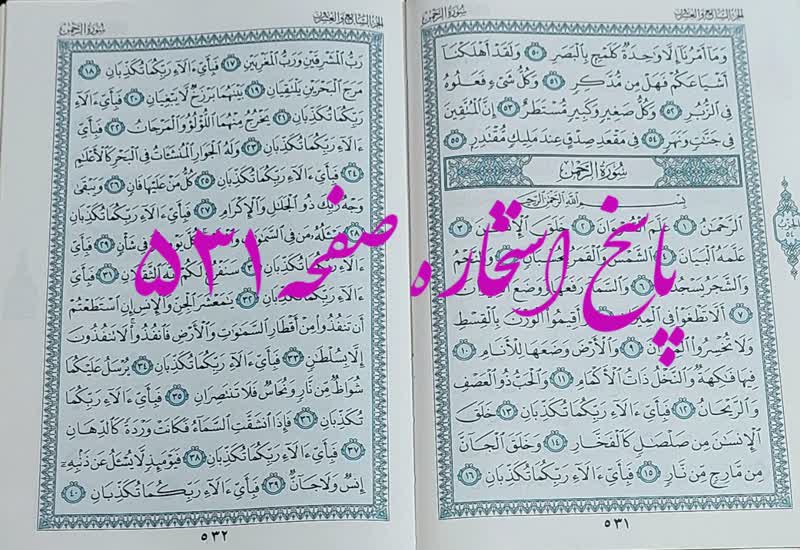 الجزء السابع والعشرون
سورة الرحمن
وَمَآ أَمْرُنَآ إِلَّا وَٰحِدَةٌ كَلَمْحٍۭ بِٱلْبَصَرِ ٥٠ وَلَقَدْ أَهْلَكْنَآ
أَشْيَاعَكُمْ فَهَلْ مِن مُّدَّكِرٍ ٥١ وَكُلُّ شَىْءٍ فَعَلُوهُ
فِى ٱلزُّبُرِ ٥٢ وَكُلُّ صَغِيرٍ وَكَبِيرٍ مُّسْتَطَرٌ ٥٣ إِنَّ ٱلْمُتَّقِينَ
فِى جَنَّٰتٍ وَنَهَرٍ ٥٤ فِى مَقْعَدِ صِدْقٍ عِندَ مَلِيكٍ مُّقْتَدِرٍۭ ٥٥
سُورَةُ الرَّحْمَٰن
بِسْمِ ٱللَّهِ ٱلرَّحْمَٰنِ ٱلرَّحِيمِ
ٱلرَّحْمَٰنُ ١ عَلَّمَ ٱلْقُرْءَانَ ٢ خَلَقَ ٱلْإِنسَٰنَ ٣
عَلَّمَهُ ٱلْبَيَانَ ٤ ٱلشَّمْسُ وَٱلْقَمَرُ بِحُسْبَانٍ ٥ وَٱلنَّجْمُ
وَٱلشَّجَرُ يَسْجُدَانِ ٦ وَٱلسَّمَآءَ رَفَعَهَا وَوَضَعَ ٱلْمِيزَانَ
٧ أَلَّا تَطْغَوْا۟ فِى ٱلْمِيزَانِ ٨ وَأَقِيمُوا۟ ٱلْوَزْنَ بِٱلْقِسْطِ
وَلَا تُخْسِرُوا۟ ٱلْمِيزَانَ ٩ وَٱلْأَرْضَ وَضَعَهَا لِلْأَنَامِ ١٠
فِيهَا فَٰكِهَةٌ وَٱلنَّخْلُ ذَاتُ ٱلْأَكْمَامِ ١١ وَٱلْحَبُّ ذُو ٱلْعَصْفِ
وَٱلرَّيْحَانُ ١٢ فَبِأَىِّ ءَالَآءِ رَبِّكُمَا تُكَذِّبَانِ ١٣ خَلَقَ
ٱلْإِنسَٰنَ مِن صَلْصَٰلٍ كَٱلْفَخَّارِ ١٤ وَخَلَقَ ٱلْجَآنَّ
مِن مَّارِجٍ مِّن نَّارٍ ١٥ فَبِأَىِّ ءَالَآءِ رَبِّكُمَا تُكَذِّبَانِ ١٦
٥٣١
الجزء السابع والعشرون
سورة الرحمن
رَبُّ ٱلْمَشْرِقَيْنِ وَرَبُّ ٱلْمَغْرِبَيْنِ ١٧ فَبِأَىِّ ءَالَآءِ رَبِّكُمَا تُكَذِّبَانِ ١٨
مَرَجَ ٱلْبَحْرَيْنِ يَلْتَقِيَانِ ١٩ بَيْنَهُمَا بَرْزَخٌ لَّا يَبْغِيَانِ ٢٠ فَبِأَىِّ ءَالَآءِ
رَبِّكُمَا تُكَذِّبَانِ ٢١ يَخْرُجُ مِنْهُمَا ٱللُّؤْلُؤُ وَٱلْمَرْجَانُ ٢٢ فَبِأَىِّ
ءَالَآءِ رَبِّكُمَا تُكَذِّبَانِ ٢٣ وَلَهُ ٱلْجَوَارِ ٱلْمُنشَـَٔاتُ فِى ٱلْبَحْرِ كَٱلْأَعْلَٰمِ
٢٤ فَبِأَىِّ ءَالَآءِ رَبِّكُمَا تُكَذِّبَانِ ٢٥ كُلُّ مَنْ عَلَيْهَا فَانٍ ٢٦ وَيَبْقَىٰ
وَجْهُ رَبِّكَ ذُو ٱلْجَلَٰلِ وَٱلْإِكْرَامِ ٢٧ فَبِأَىِّ ءَالَآءِ رَبِّكُمَا تُكَذِّبَانِ
٢٨ يَسْـَٔلُهُۥ مَن فِى ٱلسَّمَٰوَٰتِ وَٱلْأَرْضِ كُلَّ يَوْمٍ هُوَ فِى شَأْنٍ ٢٩ فَبِأَىِّ
ءَالَآءِ رَبِّكُمَا تُكَذِّبَانِ ٣٠ سَنَفْرُغُ لَكُمْ أَيُّهَ ٱلثَّقَلَانِ ٣١ فَبِأَىِّ
ءَالَآءِ رَبِّكُمَا تُكَذِّبَانِ ٣٢ يَٰمَعْشَرَ ٱلْجِنِّ وَٱلْإِنسِ إِنِ ٱسْتَطَعْتُمْ
أَن تَنفُذُوا۟ مِنْ أَقْطَارِ ٱلسَّمَٰوَٰتِ وَٱلْأَرْضِ فَٱنفُذُوا۟ لَا تَنفُذُونَ
إِلَّا بِسُلْطَٰنٍ ٣٣ فَبِأَىِّ ءَالَآءِ رَبِّكُمَا تُكَذِّبَانِ ٣٤ يُرْسَلُ عَلَيْكُمَا
شُوَاظٌ مِّن نَّارٍ وَنُحَاسٌ فَلَا تَنتَصِرَانِ ٣٥ فَبِأَىِّ ءَالَآءِ رَبِّكُمَا
تُكَذِّبَانِ ٣٦ فَإِذَا ٱنشَقَّتِ ٱلسَّمَآءُ فَكَانَتْ وَرْدَةً كَٱلدِّهَانِ
٣٧ فَبِأَىِّ ءَالَآءِ رَبِّكُمَا تُكَذِّبَانِ ٣٨ فَيَوْمَئِذٍ لَّا يُسْـَٔلُ عَن ذَنۢبِهِۦٓ
إِنسٌ وَلَا جَآنٌّ ٣٩ فَبِأَىِّ ءَالَآءِ رَبِّكُمَا تُكَذِّبَانِ ٤٠
٥٣٢
پاسخ استخاره صفحه ۵۳۱